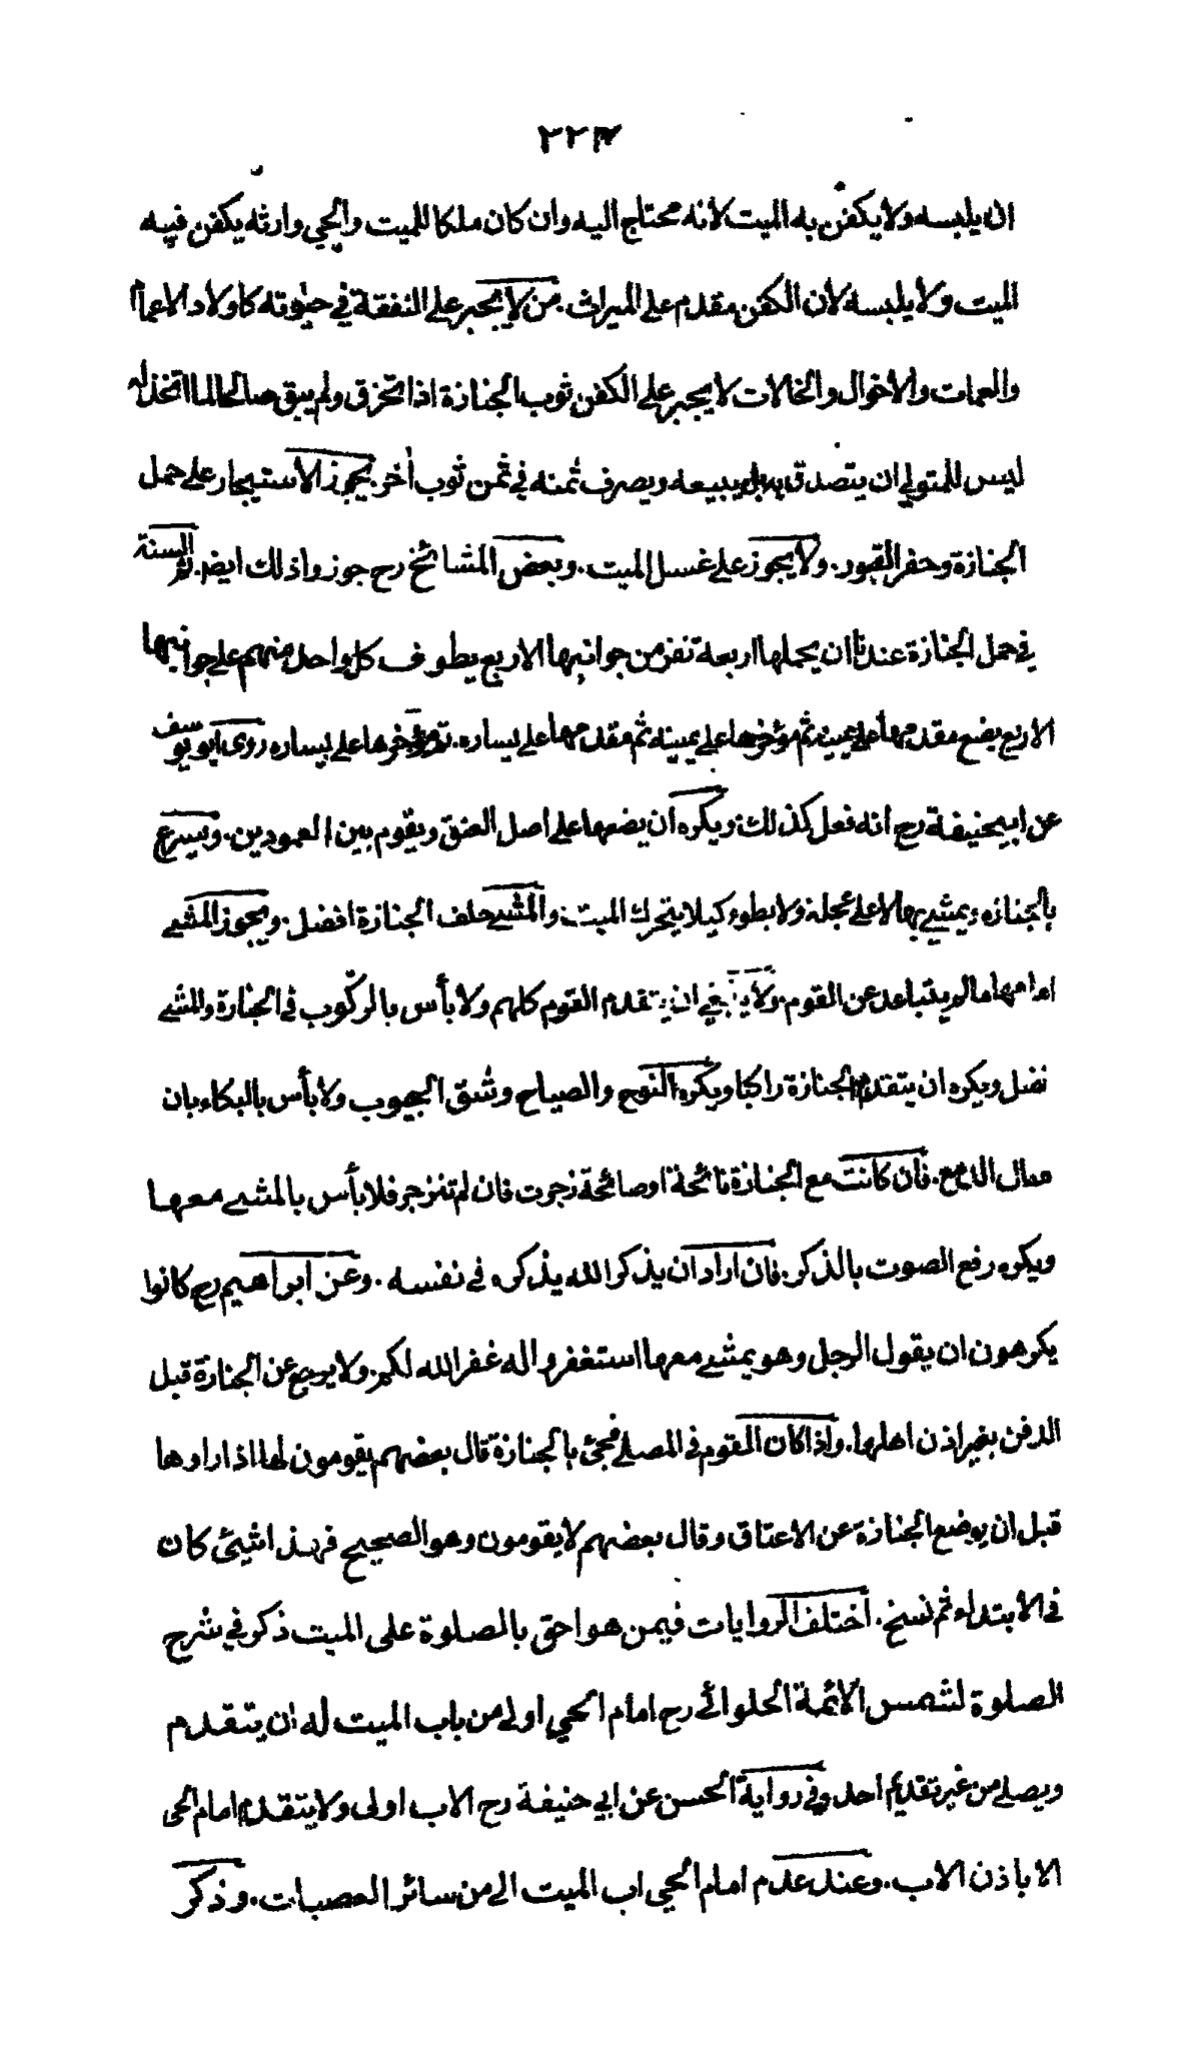 ان يلبسه ولا يكفن به الميت لأنه محتاج اليه وان كان ملكا للميت والحي وارثه يكفن فيه
الميت ولا يلبسه لأن الكفن مقدم على الميراث. من لا يجبر على النفقة في حيوته كاولاد الاعمام
والعمات والاخوال والخالات لا يجبر على الكفن ثوب الجنازة اذا تخرق ولم يبق صالحا لما اتخذ له
ليس للمتولي ان يتصدق به بل يبيعه ويصرف ثمنه في ثمن ثوب أخر. يجوز الاستيجار على حمل
الجنازة وحفر القبور. ولا يجوز على غسل الميت. وبعض المشائخ رح جوزوا ذلك ايضا. ثم السنة
في حمل الجنازة عندنا ان يحملها اربعة نفر من جوانبها الاربع يطوف كل واحد منهم على جوانبها
الاربع يضع مقدمها على يمينه ثم مؤخرها على يمينه ثم مقدمها على يساره. ثم مؤخرها على يساره روى ابو يوسف
عن ابيحنيفة رح انه فعل كذلك ويكره ان يضعها على اصل العنق ويقوم بين العمودين. ويسرع
بالجنازه ويمشي بها لا على عجلة ولا بطوء كيلا يتحرك الميت والمشي خلف الجنازة افضل. ويجوز المشي
امامها مالم يتباعد عن القوم ولا ينبغي ان يتقدم القوم كلهم ولا بأس بالركوب في الجنازة والمشي
فضل ويكره ان يتقدم الجنازة راكبا ويكره النوح والصياح وشق الجيوب ولا بأس بالبكاء بان
الدمع. فان كانت مع الجنازة نائحة اوصائحة زجرت فان لم تنزجر فلا بأس بالمشي معها
ويكره رفع الصوت بالذكر. فان اراد ان يذكر الله يذكره في نفسه. وعن ابراهيم رح كانوا
يكرهون ان يقول الرجل وهو يمشي معها استغفروا له غفر الله لكم. ولا يرجع عن الجنازة قبل
الدفن بغير اذن اهلها. واذا كان القوم في المصلى فجئ بالجنازة قال بعضهم يقومون لها اذا راوها
قبل ان يوضع الجنازة عن الاعتاق وقال بعضهم لا يقومون وهو الصحيح فهذا شئ كان
في الابتداء ثم نسخ. أختلف الروايات فيمن هو احق بالصلوة على الميت ذكر في شرح
الصلوة لشمس الائمة الحلوائي رح امام الحي اولى من باب الميت له ان يتقدم
ويصلى من غير تقديم احد وفي رواية الحسن عن ابي حنيفة رح الاب اولى ولا يتقدم امام الحى
الا باذن الاب. وعند عدم امام الحي اب الميت الى من سائر العصبات. وذكر